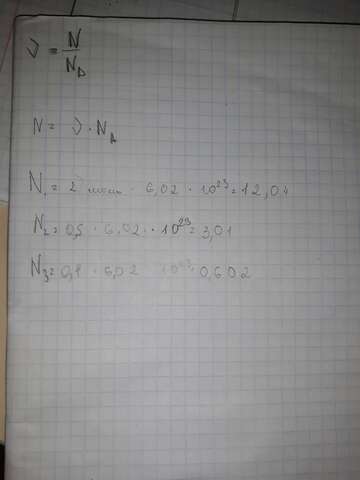 ν = N/N_A
N = ν · N_A
N₁ = 2 моль · 6,02 · 10²³ = 12,04
N₂ = 0,5 · 6,02 · 10²³ = 3,01
N₃ = 0,1 · 6,02 10²³ 0,602